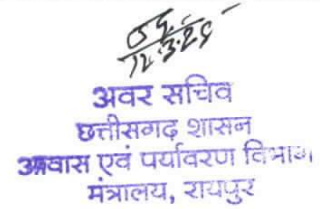 12.3.25
अवर सचिव
छत्तीसगढ़ शासन
आवास एवं पर्यावरण विभाग
मंत्रालय, रायपुर